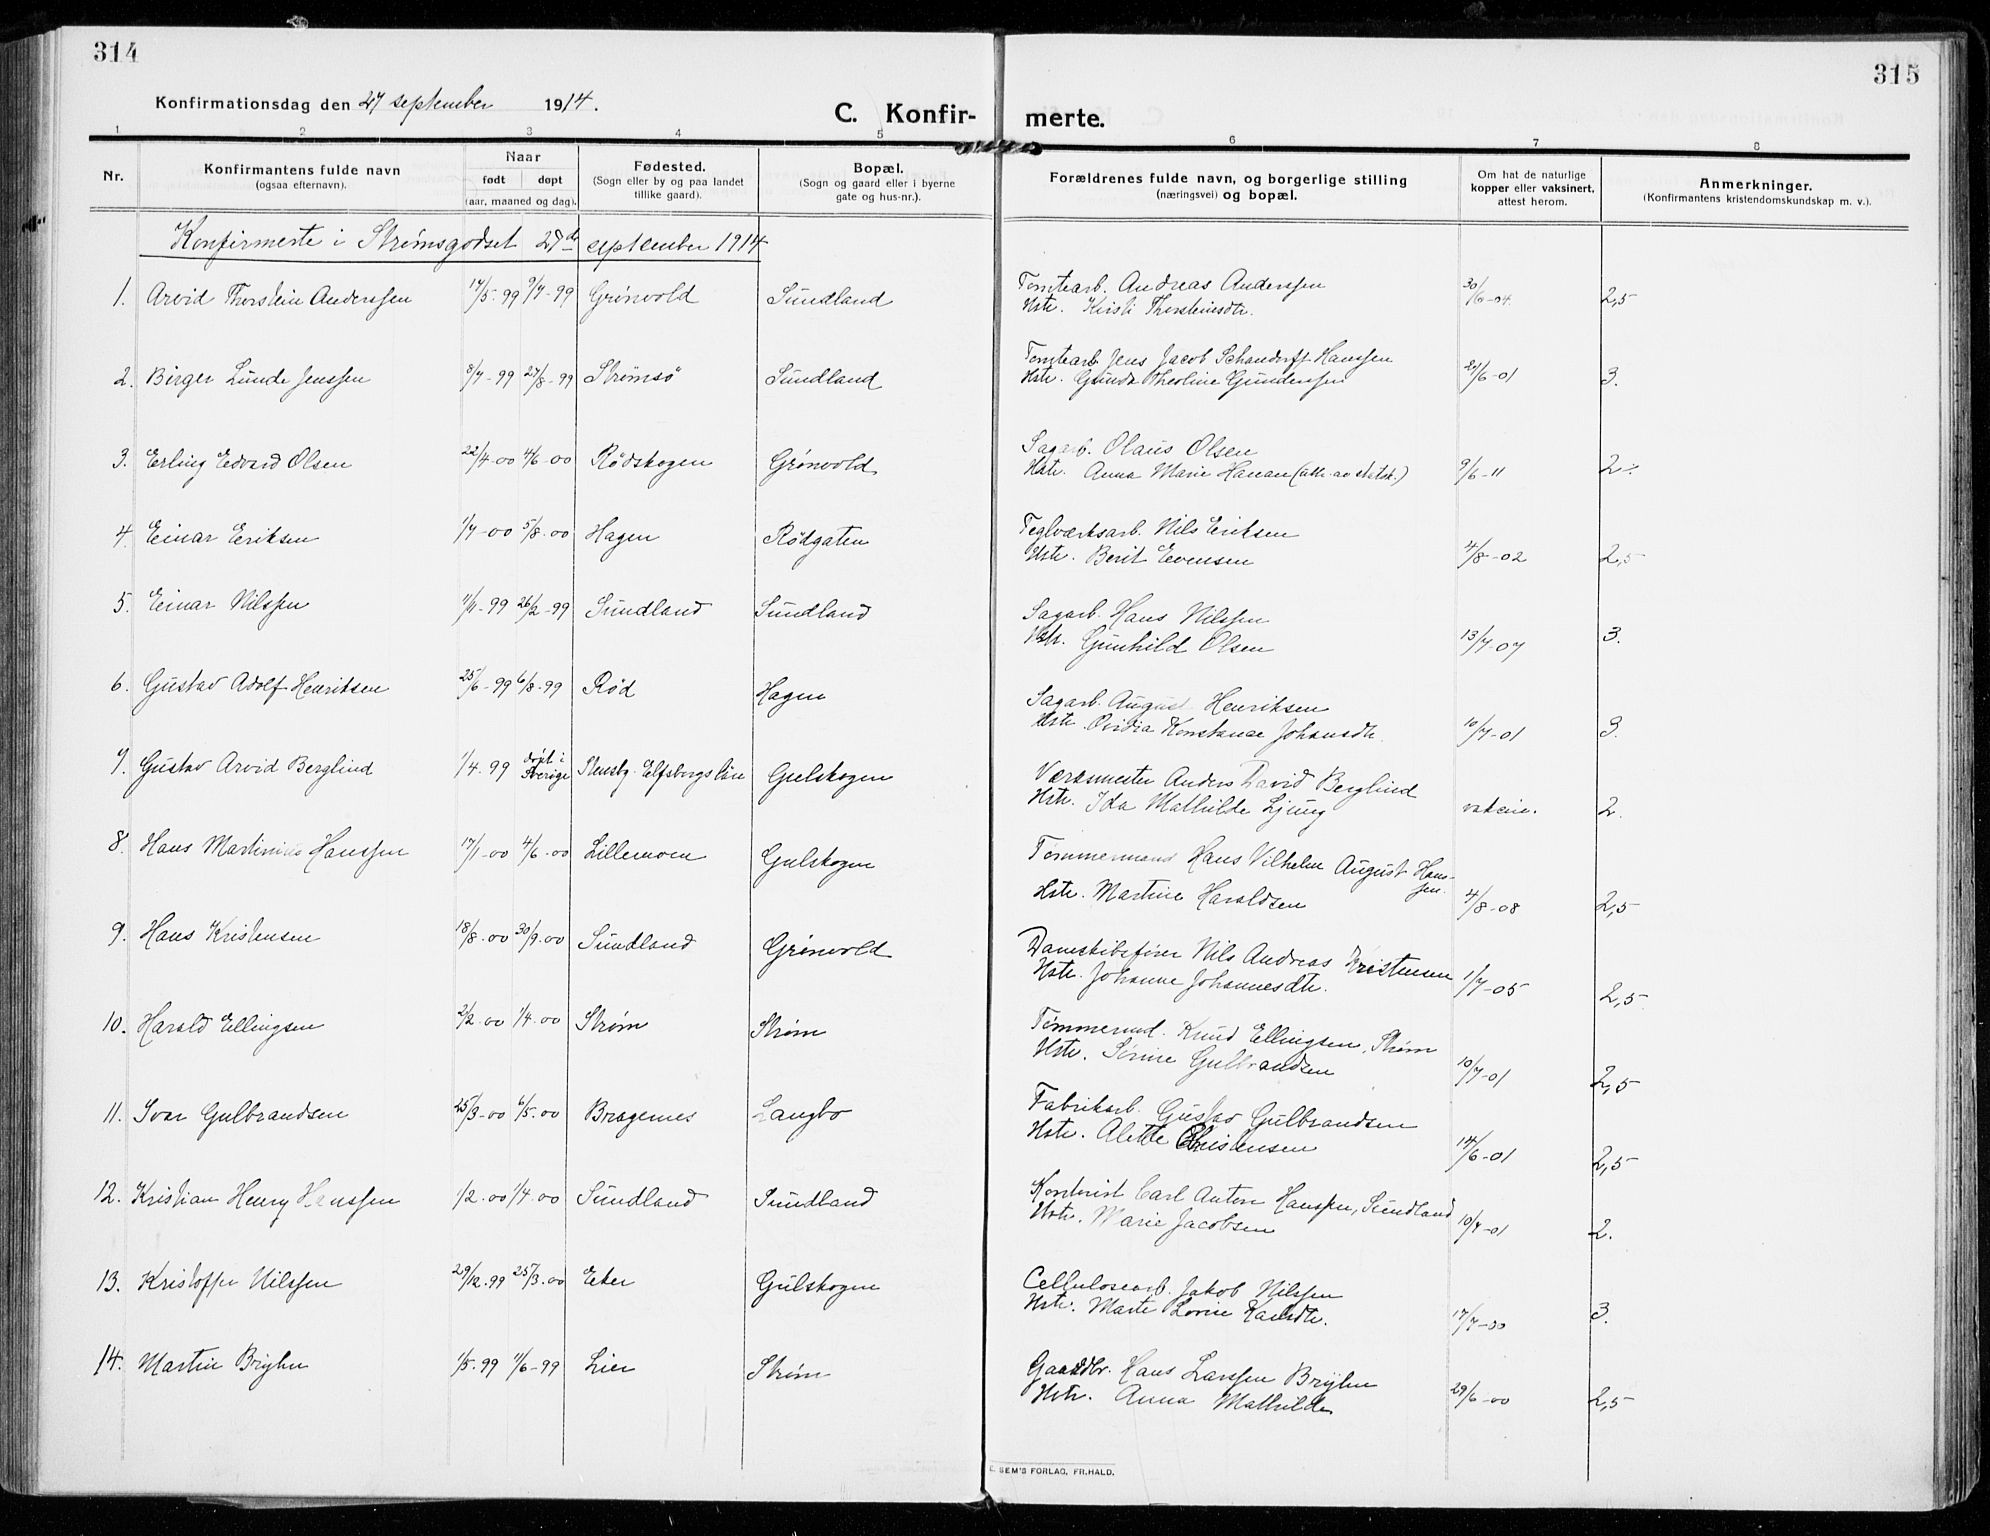 314
315
Konfirmationsdag den 27 september 1914.
C. Konfir- merte.
1 2 3 4 5 6 7 8
Nr. Konfirmantens fulde navn (ogsaa efternavn). Naar født døpt (aar, maaned og dag). Fødested. (Sogn eller by og paa landet tillike gaard). Bopæl. (Sogn og gaard eller i byerne gate og hus-nr.). Forældrenes fulde navn, og borgerlige stilling (næringsvei) og bopæl. Om hat de naturlige kopper eller vaksinert, attest herom. Anmerkninger. (Konfirmantens kristendomskundskap m. v.).
Konfirmerte i Strømsgodset 27de september 1914
1. Arvid Thorstein Anderssen 17/5-99 9/7-99 Grønvold Sundland Tomtearb. Andreas Anderssen 30/6-04. 2,5
Hstr. Kirsti Thorsteinsdtr.
2. Birger Lunde Jenssen 8/7-99 27/8-99 Strømsö Sundland Tomtearb. Jens Jacob Schandorff Hanssen 21/6-01 3.
Hstr. Gunda Theoline Gunderssen
3. Erling Edvard Olsen 22/4-00 4/6-00 Rødskogen Grønvold Sagarb. Olaus Olsen
Hstr. Anna Marie Hansen 9/6-11 2÷
4. Einar Eriksen 1/7-00 5/8-00 Hagen Rødgaten Teglværksarb. Nils Eriksen
Hstr. Berit Evensen 4/8-02 2,5
5. Einar Nilssen 1/11-99 26/2-99 Sundland Sundland Sagarb. Hans Nilssen
Hstr. Gunhild Olsen 13/7-07 3.
6. Gustav Adolf Henriksen 25/6-99 6/8-99 Rød Hagen Sagarb. August Henriksen
Hstr. Ovidia Konstanse Johansdtr. 10/7-01 3.
7. Gustav Arvid Berglind 1/4-99 døpt i Sverige Elfsborgs län Gulskogen Værksmester Anders David Berglind
Hstr. Ida Mathilde Ljung vaksine. 2.
8. Hans Martinius Hanssen 17/1-00 4/6-00 Lillemoen Gulskogen Tømmermand Hans Vilhelm August Hans-
sen.
Hstr. Martine Haraldsen 4/8-08 2,5
9. Hans Kristensen 18/8-00 30/9-00 Sundland Grønvold Dampskibsfører Nils Andreas Kristensen
Hstr. Johanne Johannesdtr. 1/7-05 2,5
10. Harald Ellingsen 2/2-00 1/4-00 Strøm Strøm Tømmermd. Knud Ellingsen, Strøm
Hstr. Sørine Gulbrandsen 10/7-01 2,5
11. Ivar Gulbrandsen 25/3-00 6/5-00 Bragernes Langbo Fabrikarb. Gustav Gulbrandsen
Hstr. Alette Christensen 14/6-01 2,5
12. Kristian Henry Hanssen 1/2-00 1/4-00 Sundland Sundland Kontorist Carl Anton Hanssen, Sundland
Hstr. Marie Jacobsen 10/7-01 2.
13. Kristoffer Nilssen 29/12-99 25/3-00 Eker Gulskogen Cellulosearb. Jakob Nilssen
Hstr. Marte Lovise Karlsdtr. 17/7-00 3.
14. Martin Bryhn 1/5-99 11/6-99 Lier Strøm Gaardbr. Hans Larssen Bryhn
Hstr. Anna Mathilde 29/6-00 2,5
E. SEM'S FORLAG, FR.HALD.